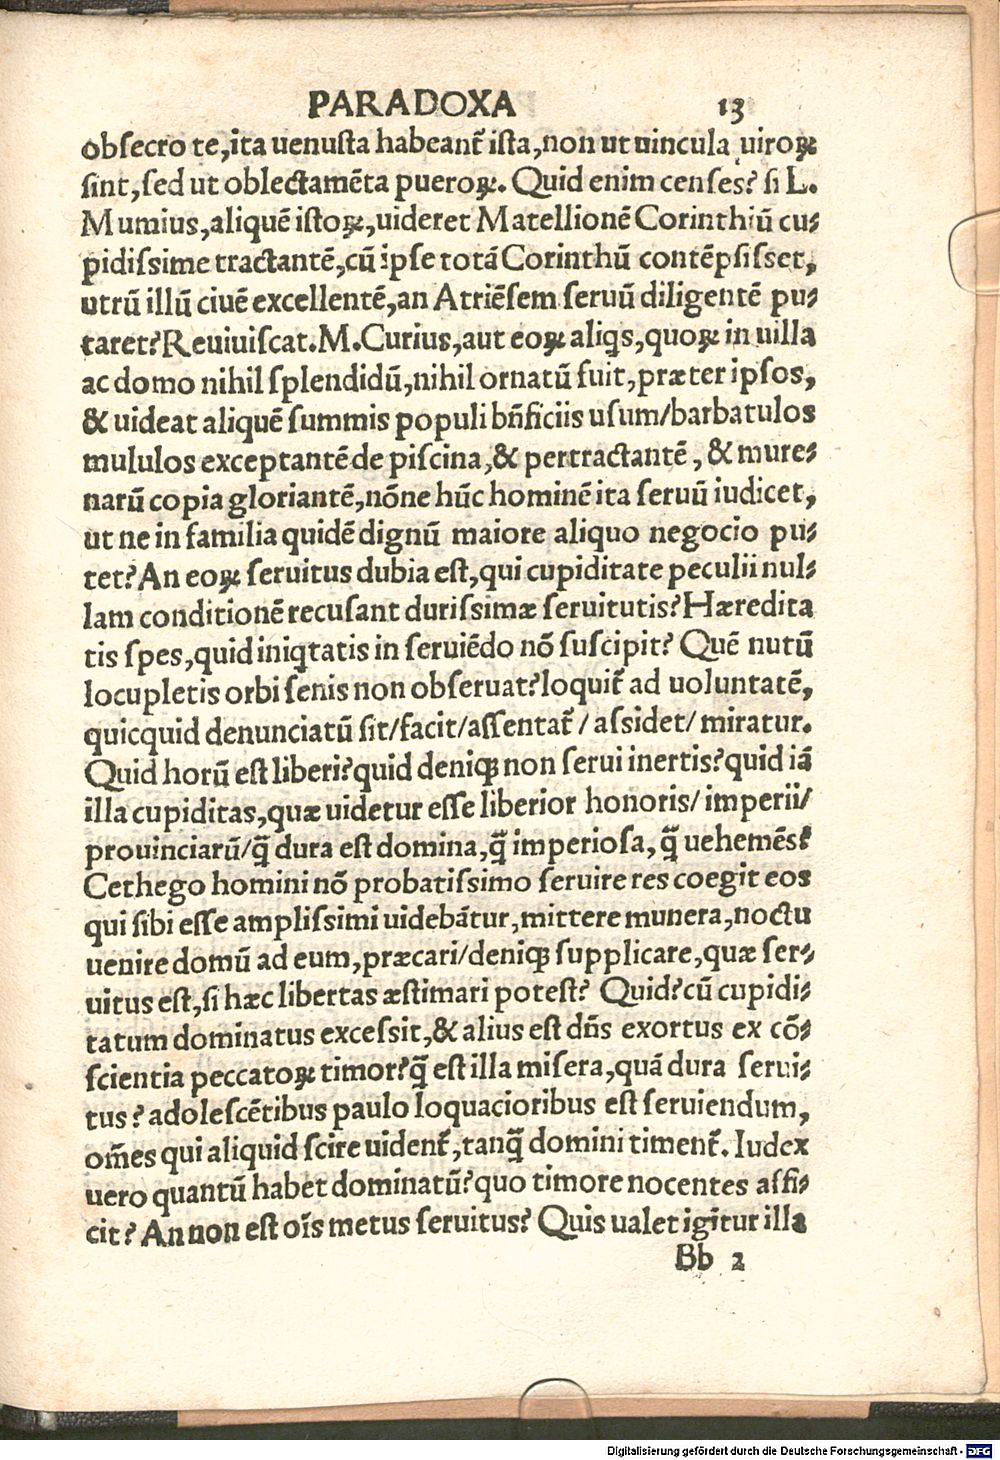 PARADOXA 13
obſecro te,ita uenuſta habeant᷑ iſta,non ut uincula uiroꝝ
ſint,ſed ut oblectamēta pueroꝝ. Quid enim cenſes? ſi L.
Mumius,aliquē iſtoꝝ,uideret Matellionē Corinthiū cu⸗
pidiſsime tractantē,cū ipſe totā Corinthū contēpſiſset,
utrū illū ciuē excellentē,an Atriēſem ſeruū diligentē pu⸗
taret?Reuiuiſcat.M.Curius,aut eoꝝ aliq̇s,quoꝝ in uilla
ac domo nihil ſplendidū,nihil ornatū fuit,præter ipſos,
& uideat aliquē ſummis populi bn̄ficiis uſum/barbatulos
mululos exceptantē de piſcina,& pertractantē, & mure⸗
narū copia gloriantē,nōne hūc hominē ita ſeruū iudicet,
ut ne in familia quidē dignū maiore aliquo negocio pu⸗
tet?An eoꝝ ſeruitus dubia eſt,qui cupiditate peculii nul⸗
lam conditionē recuſant duriſsimæ ſeruitutis?Hæredita
tis ſpes,quid iniq̇tatis in ſeruiēdo nō ſuſcipit? Quē nutū
locupletis orbi ſenis non obſeruat?loquit᷑ ad uoluntatē,
quicquid denunciatū ſit/facit/aſſentat᷑/aſsidet/miratur.
Quid horū eſt liberi?quid deniqꝫ non ſerui inertis?quid iā
illa cupiditas,quæ uidetur eſſe liberior honoris/imperii/
prouinciarū/q̄ dura eſt domina,q̄ imperioſa, q̄ uehemēs?
Cethego homini nō probatiſsimo ſeruire res coegit eos
qui ſibi eſſe ampliſsimi uidebātur,mittere munera,noctu
uenire domū ad eum,præcari/deniqꝫ ſupplicare,quæ ſer⸗
uitus eſt,ſi hæc libertas æſtimari poteſt? Quid?cū cupidi⸗
tatum dominatus exceſsit,& alius eſt dn̄s exortus ex cō⸗
ſcientia peccatoꝝ timor?q̄ eſt illa miſera,quā dura ſerui⸗
tus? adoleſcētibus paulo loquacioribus eſt ſeruiendum,
om̄es qui aliquid ſcire uident᷑,tanq̄ domini timent᷑. Iudex
uero quantū habet dominatū?quo timore nocentes affi⸗
cit? An non eſt oīs metus ſeruitus? Quis ualet igitur illa
Bb 2
Digitalisierung gefördert durch die Deutsche Forschungsgemeinschaft - DFG